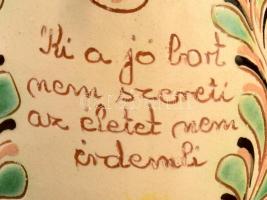 Ki a jó bort
nem szereti
az életet nem
érdemli